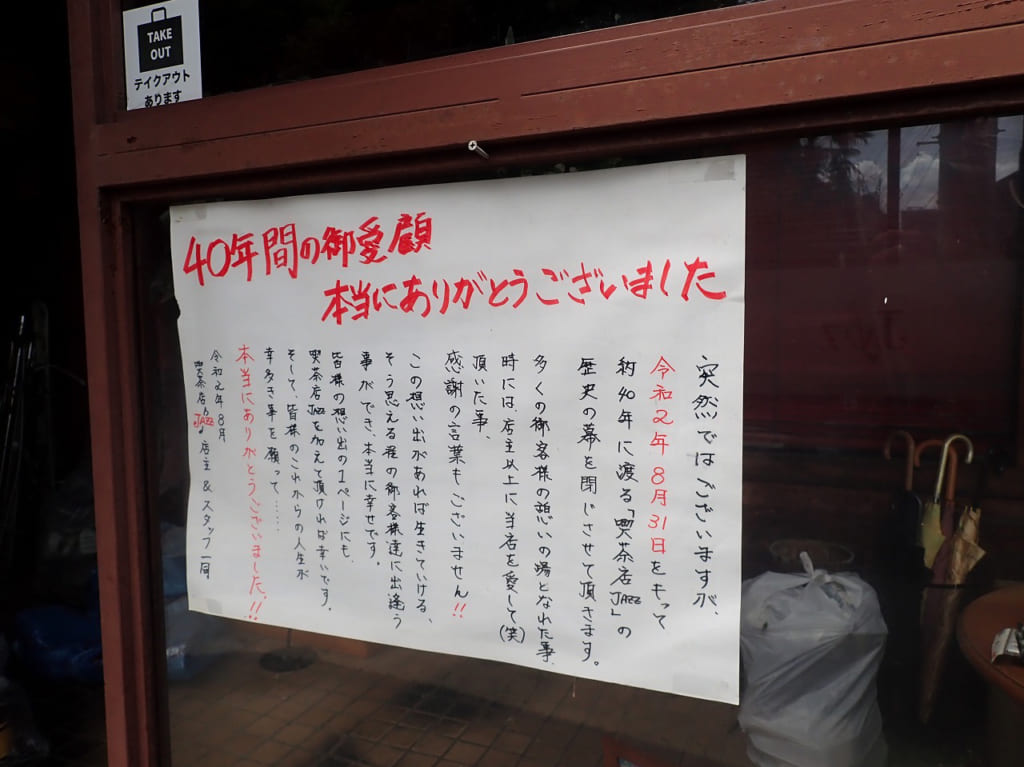 TAKE
OUT
テイクアウト
あります
40年間の御愛顧
本当にありがとうございました
突然ではございますが、
令和2年8月31日をもって
約40年に渡る「喫茶店JAZZ」の
歴史の幕を閉じさせて頂きます。
多くの御客様の憩いの場となれた事、
時には、店主以上に当店を愛して(笑)
頂いた事、
感謝の言葉もございません!!
この想い出があれば生きていける、
そう思える程の御客様達に出逢う
事ができ、本当に幸せです。
皆様の想い出の1ページにも、
喫茶店JAZZを加えて頂ければ幸いです。
そして、皆様のこれからの人生が
幸多き事を願って……
本当にありがとうございました!!
令和元年8月
喫茶店JAZZ 店主&スタッフ一同